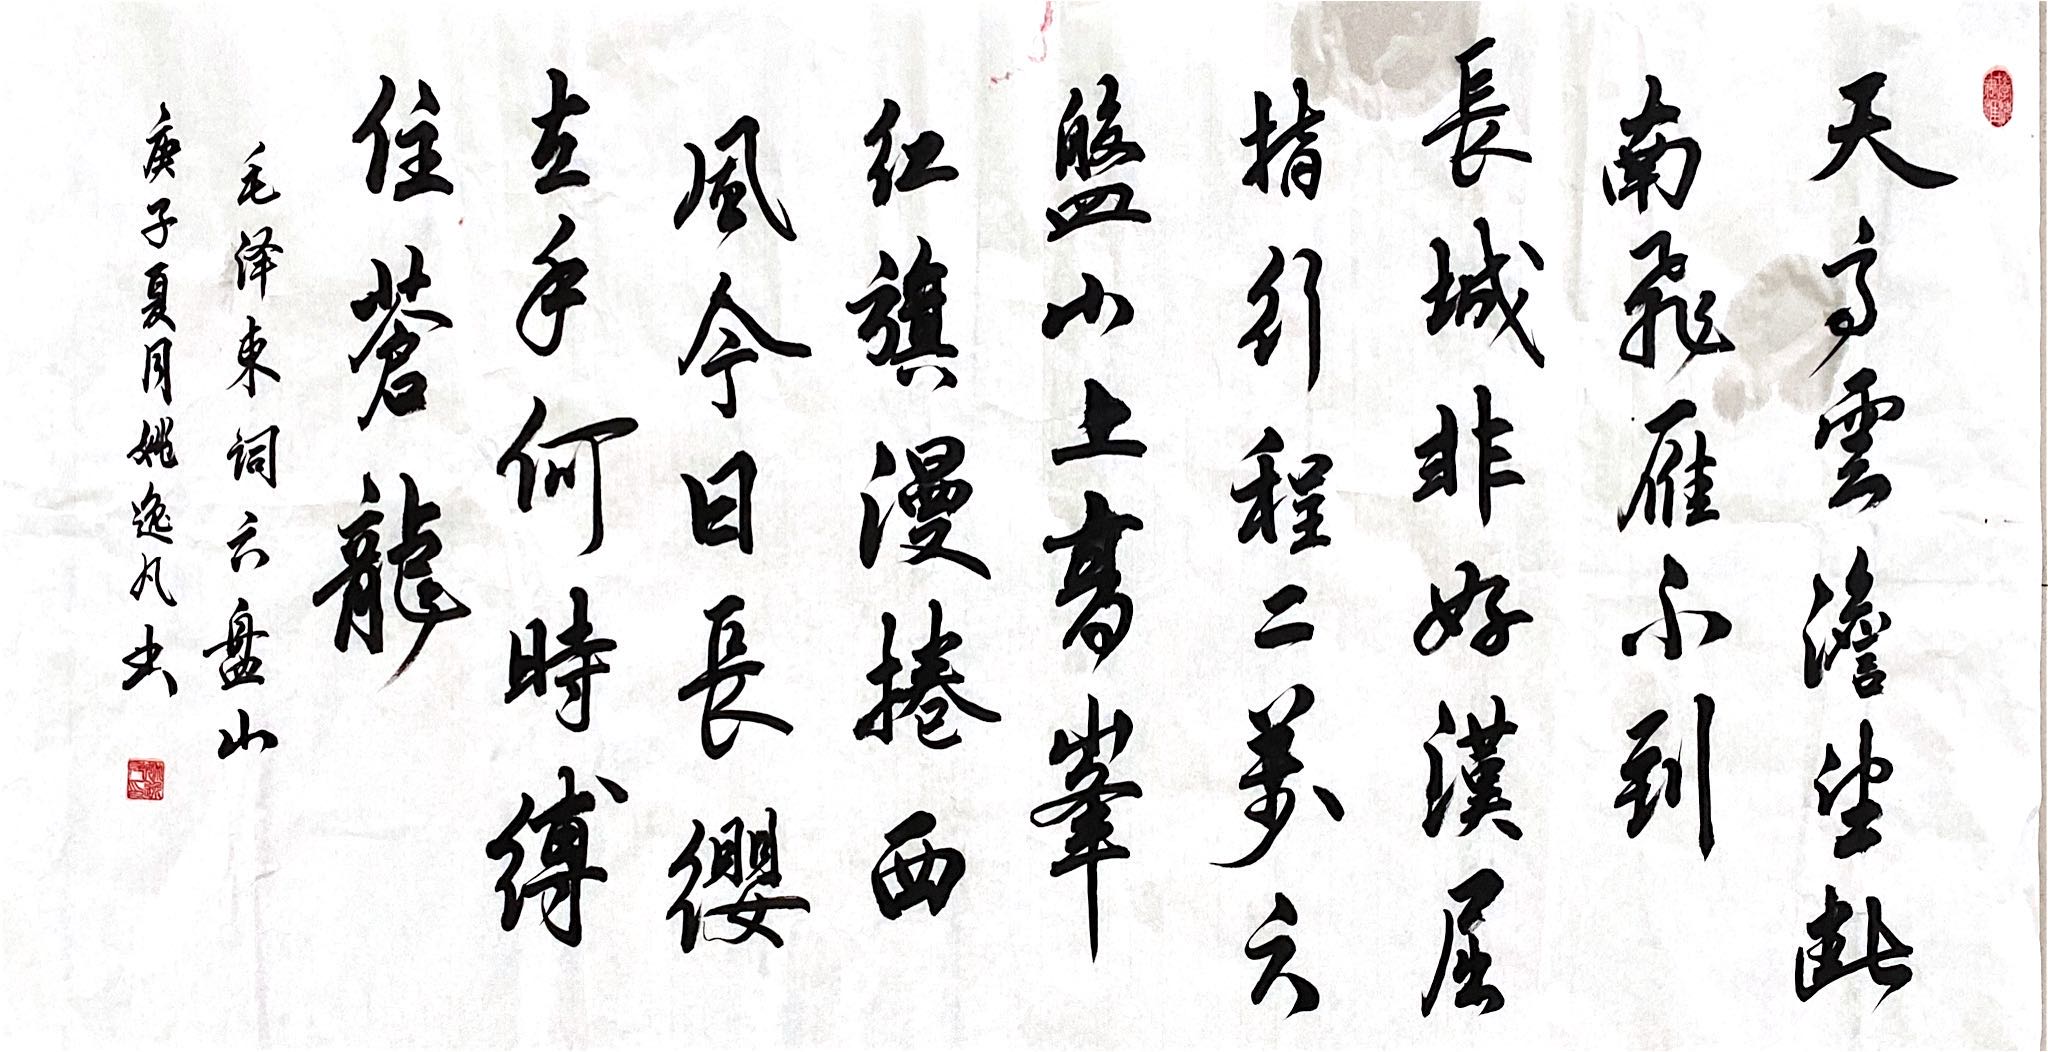 天高雲澹望斷
南飛雁不到
長城非好漢屈
指行程二萬六
盤山上高峯
红旗漫捲西
風今日長纓
在手何時縛
住蒼龍
毛泽東词六盘山
庚子夏月姚逸凡书